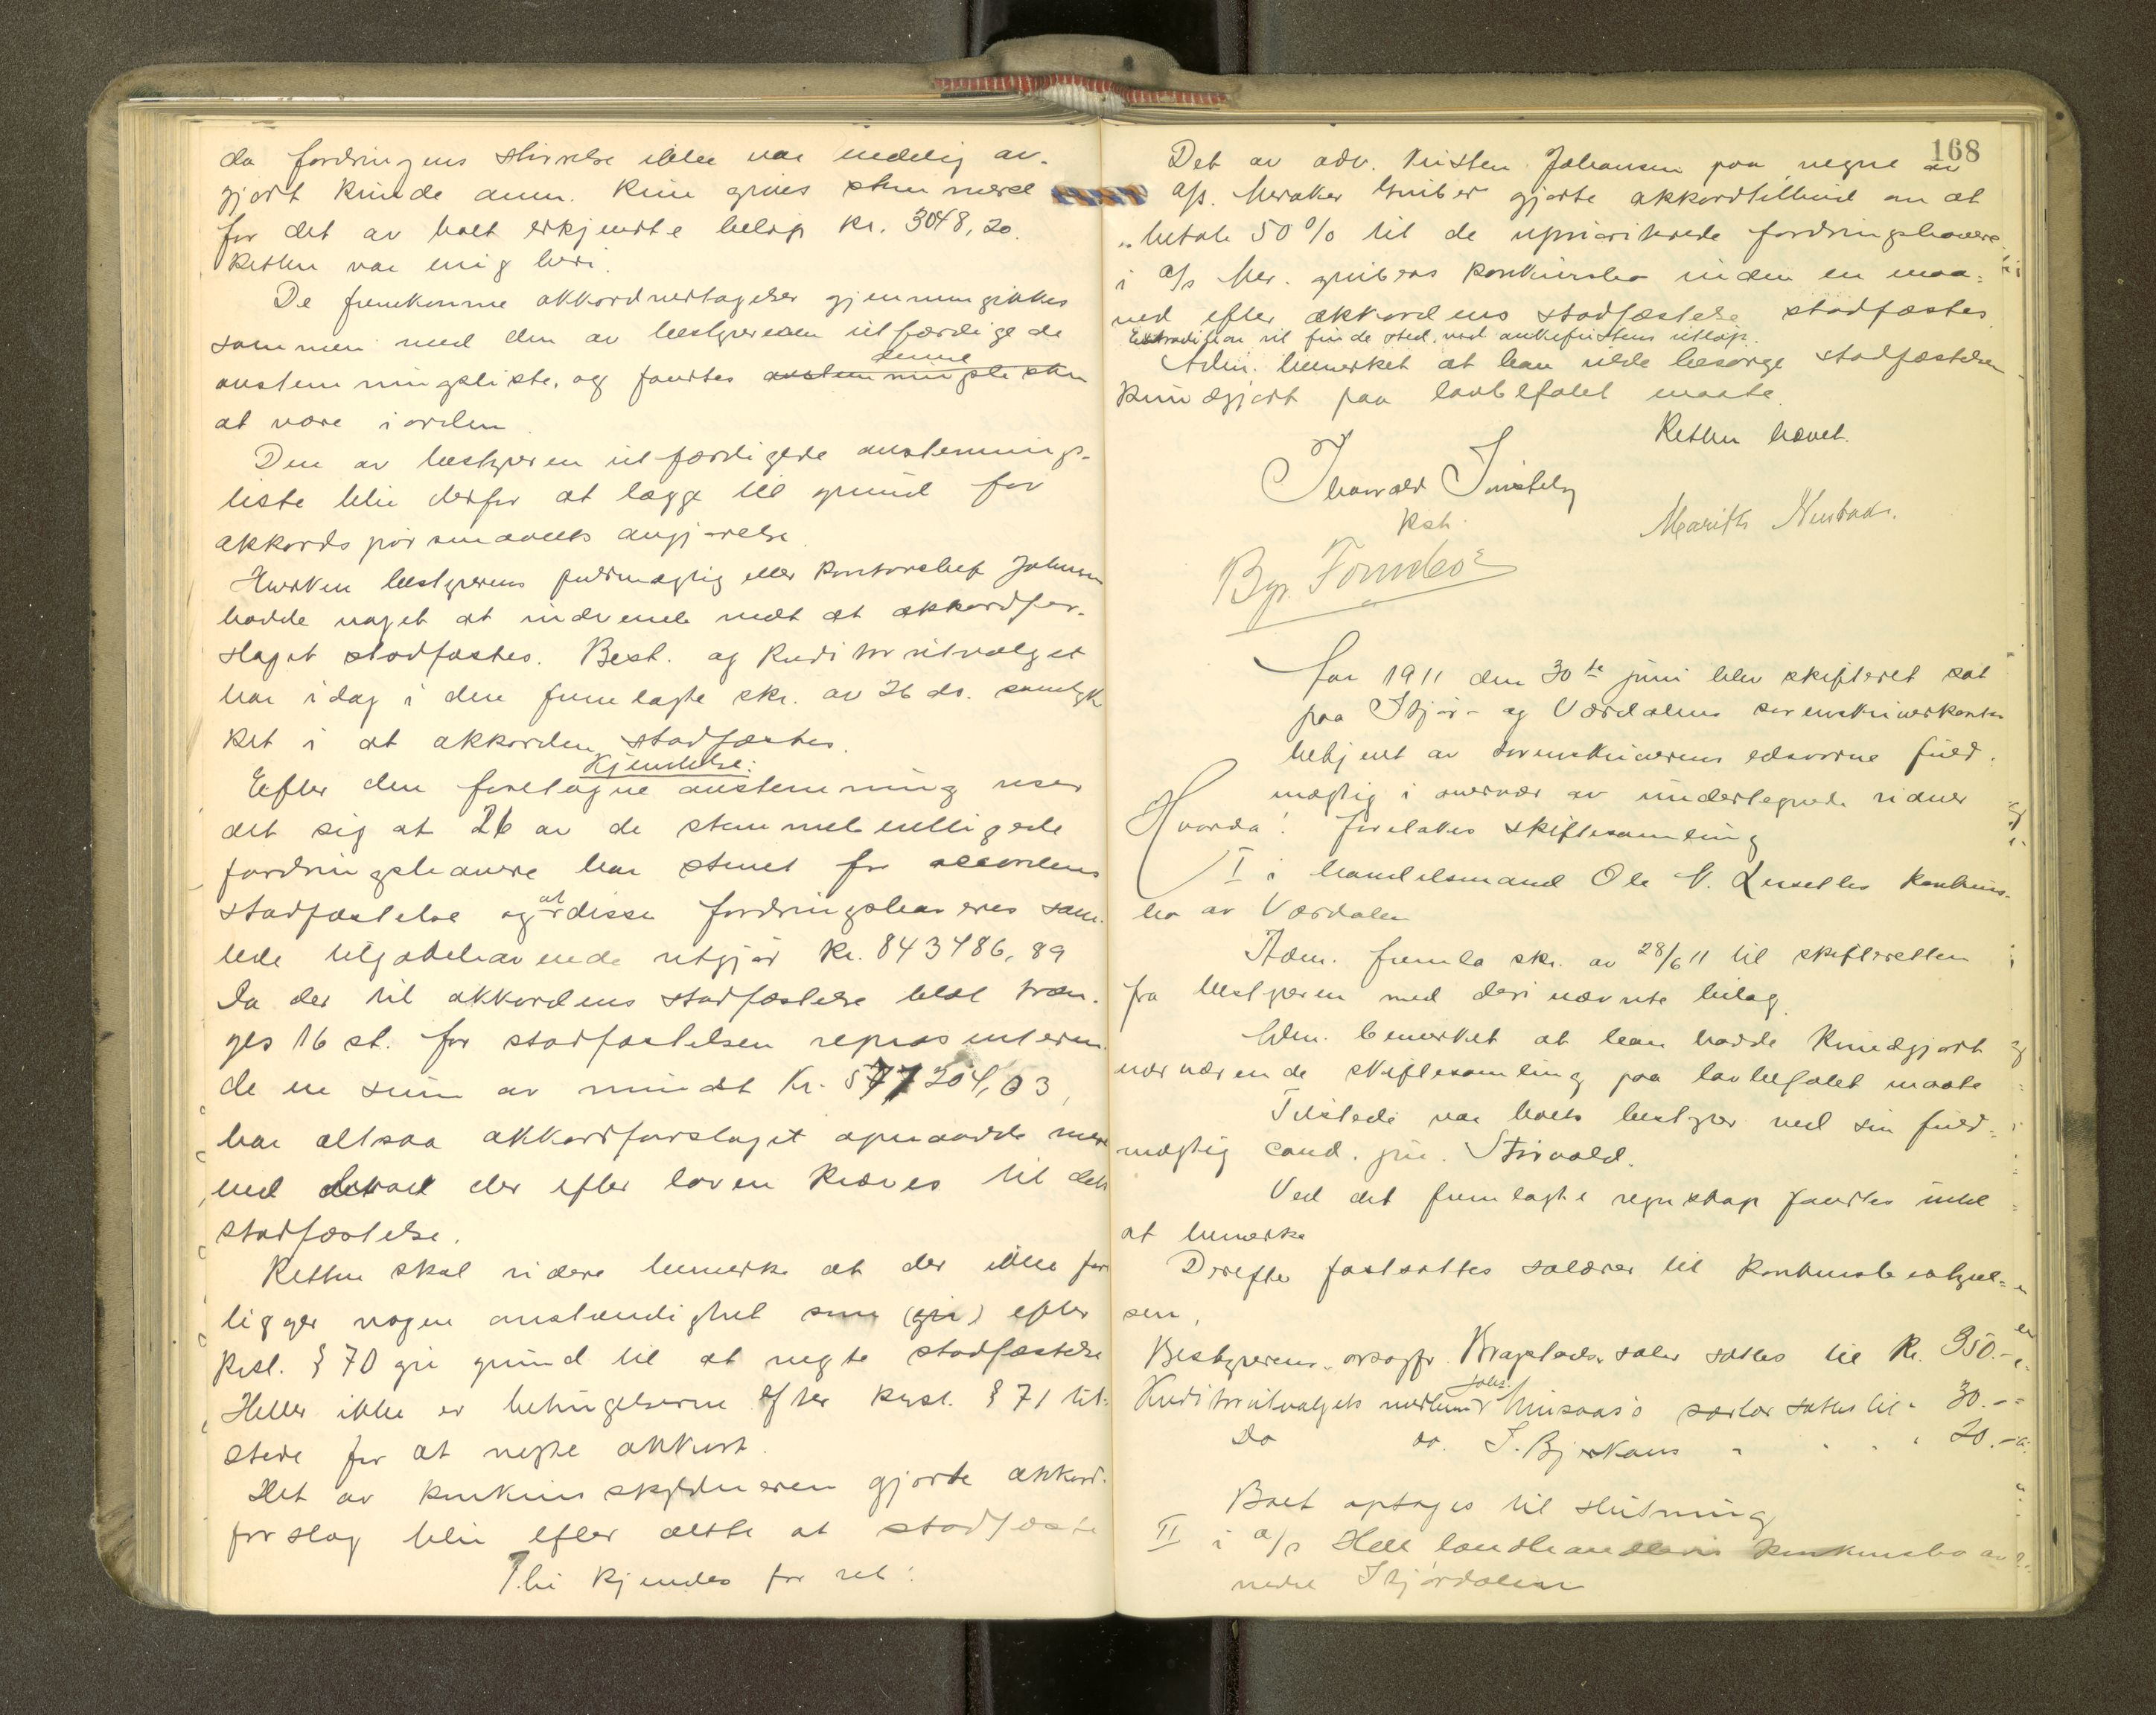 da fordringens størrelse ikke var endelig av-
gjort kunde anm. kun gives stemmeret
for det av boet erkjendte beløp kr. 3048,20.
Retten var enig heri.
De fremkomne akkordvedtagelser gjennemgikkes
sammen med den av bestyreren utfærdigede
avstemningsliste, og fandtes denne avstemningslisten
at være i orden.
Den av bestyreren utfærdigede avstemnings-
liste blir derfor at lægge til grund for
akkordspørsmaalets avgjørelse.
Hverken bestyrerens fuldmægtig eller kontorchef Johnsen
hadde noget at indvende mot at akkordfor-
slaget stadfæstes. Best. og kreditorutvalget
har idag i den fremlagte skr. av 26 ds. samtyk
ket i at akkorden stadfæstes.
Kjendelse:
Efter den foretagne avstemning viser
det sig at 26 av de stemmeberettigede
fordringshavere har stemt for accordens
stadfæstelse og at disse fordringshaveres sam-
lede tilgodehavende utgjør kr. 843486,89
Da der til akkordens stadfæstelse blot træn-
ges 16 st. for stadfæstelsen repræsenteren-
de en sum av mindst kr. 577204,03,
har altsaa akkordforslaget opnaadd mere
end hvad der efter loven kræves til dets
stadfæstelse.
Retten skal videre bemerke at der ikke fore
ligger nogen omstændighet som (gir) efter
krsl. § 70 gir grund til at negte stadfæstelse
Heller ikke er betingelserne efter krsl. § 71 til-
stede for at negte akkord.
Det av konkursskyldneren gjorde akkord-
forslag blir efter dette at stadfæste
Thi kjendes for ret:
168
Det av adv. Kristen Johansen paa vegne av
A/s. Meraker Gruber gjorte akkordtilbud om at
betale 50 % til de uprioriterede fordringshavere
i A/s Mer. grubers konkursbo inden en maa-
ned efter akkordens stadfæstelse stadfæstes.
Extradition vil finde sted ved ankefristens utløp.
Adm. bemerket at han vilde besørge stadfæstelsen
kundgjort paa lovbefalet maate.
Retten hævet.
Thorvald
kst.
Marith
Byr.
Aar 1911 den 30te juni blev skifteret sat
paa Stjør- og Værdalens sorenskriverkontor
betjent av sorenskriverens edsvorne fuld-
mægtig i overvær av undertegnede vidner
Hvorda! foretokes skiftesamling
I i handelsmand Ole N. konkurs-
bo av Værdalen
Adm. fremla skr. av 28/6 11 til skifteretten
fra bestyreren med deri nævnte bilag.
Adm. bemerket at han hadde kundgjort
nærværende skiftesamling paa lovbefalet maate
Tilstede var boets bestyrer ved sin fuld-
mægtig cand. jur. Størvold.
Ved det fremlagte regnskap fandtes intet
at bemerke
Derefter fastsattes salærer til konkursbestyrel-
sen,
Bestyrerens, orsagfr. salær sattes til kr. 350.-
Kreditorutvalgets medlem Johs. salær sattes til " 30.-
Do do. S. " " " " 20.-
Boet optages til slutning
II i a/s Hell landhandleris konkursbo av
nedre Stjørdalen